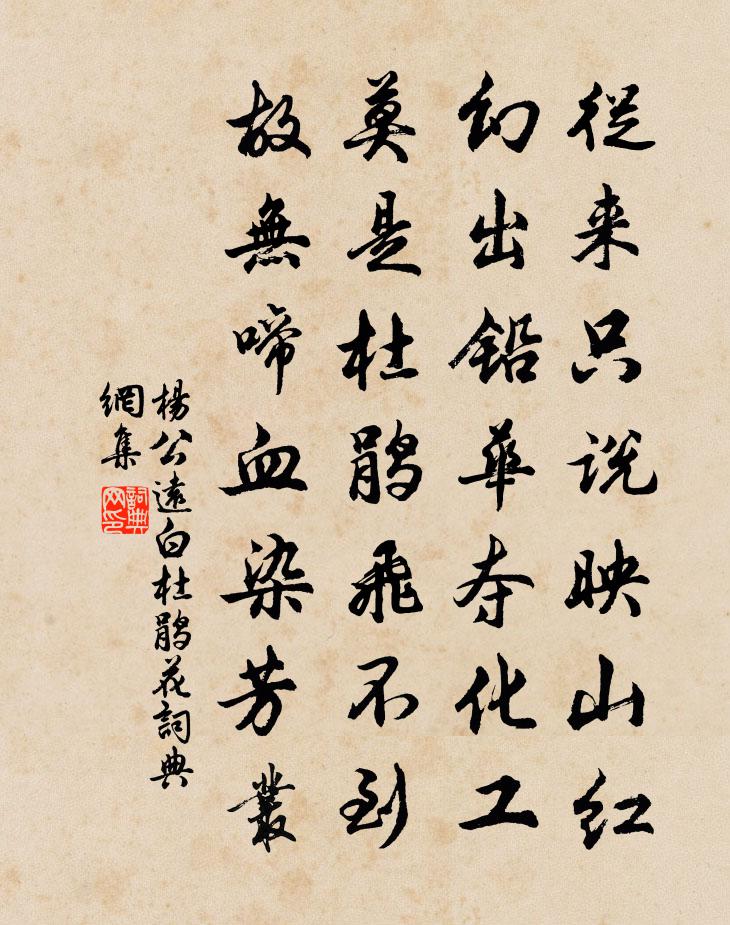 從来只说映山红
幻出铅華夺化工
莫是杜鹃飛不到
故無啼血染芳叢
楊公遠白杜鹃花詞典
網集
詞典网印